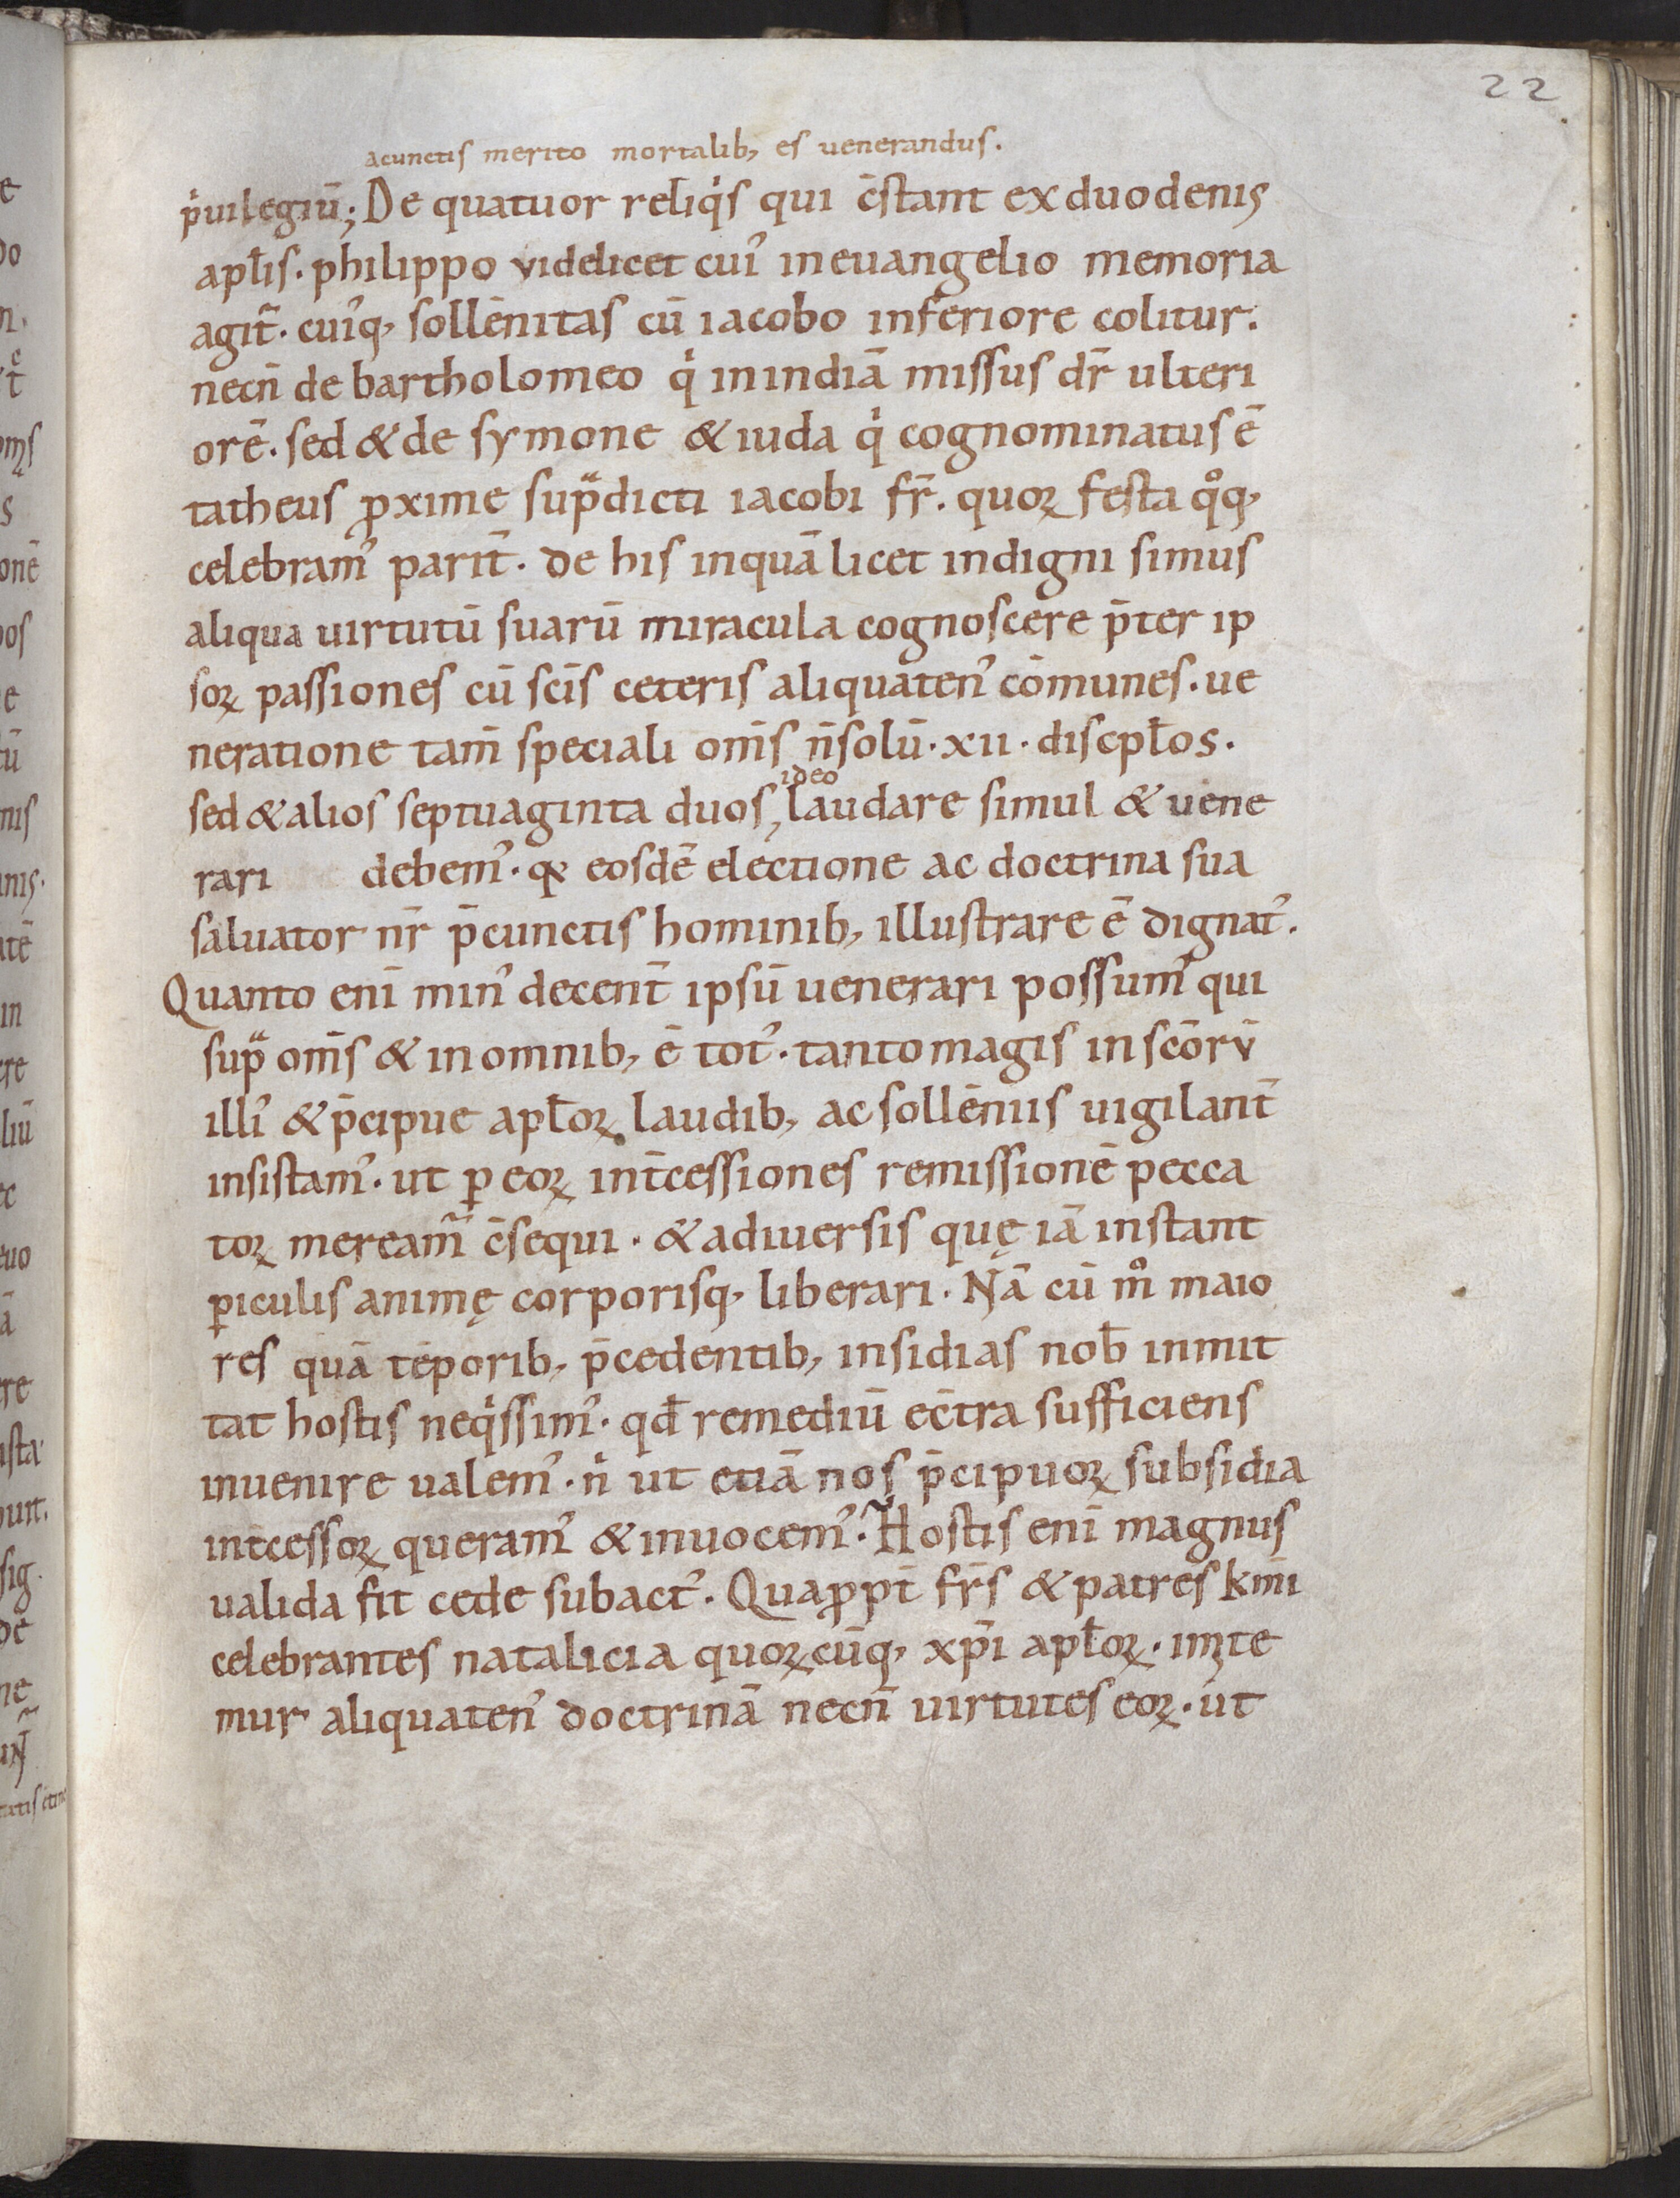 22
acunctis merito mortalib, es uenerandus.
p͛uilegiū; De quatuor reliq͛s qui c̄stant ex duodenis
apƚis. philippo videlicet cui᾿ ineuangelio memoria
agit̃. cui᾿q, sollēnitas cū iacobo inferiore colitur.
necn̄ de bartholomeo q͛ inindiā missus dr̄ ulteri
orē. sed & de symone & iuda q͛ cognominatus ē
tatheus ꝓxime sup̃dicti iacobi fr̄. quoꝝ festa qͦq,
celebram᾿ parit̄. de his inquā licet indigni simus
aliqua uirtutū suarū miracula cognoscere p̄ter ip
soꝝ passiones cū sc̄is ceteris aliquaten᾿ cōmunes. ue
neratione tam̄ speciali om̄s n̄solū. xii. discpƚos.
ideo
sed & alios septuaginta duos, laudare simul & uene
rari debem᾿. qꝛ eosdē electione ac doctrina sua
saluator nr̄ p̄cunctis hominib, illustrare ē dignat᾿.
Quanto enī min᾿ decent̄ ipsū uenerari possum᾿ qui
sup̃ om̄s & in omnib, ē tot᾿. tantomagis in sc̄orv̄
illi᾿ & p̄cipue apƚoꝝ laudib, ac sollēniis uigilant̄
insistam᾿. ut ꝑ eoꝝ int̄cessiones remissionē pecca
toꝝ meream̃ c̄sequi. & adiuersis quę iā instant
ꝑiculis animę corporisq, liberari. Nā cū mͦ maio
res quā tēporib, p̄cedentib, insidias nob̄ inmit
tat hostis neq͛ssim᾿. qd̄ remediū ec̄tra sufficiens
inuenire ualem᾿. n͛ ut etiā nos p̄cipuoꝝ subsidia
int̄cessoꝝ queram᾿ & inuocem᾿. Hostis enī magnus
ualida fit cede subact᾿. Quaꝓpt̄ fr̄s & patres km̄i
celebrantes natalicia quoꝝcūq, xp̄i apƚoꝝ. imꝫte
mur aliquaten᾿ doctrinā necn̄ uirtutes eoꝝ. ut